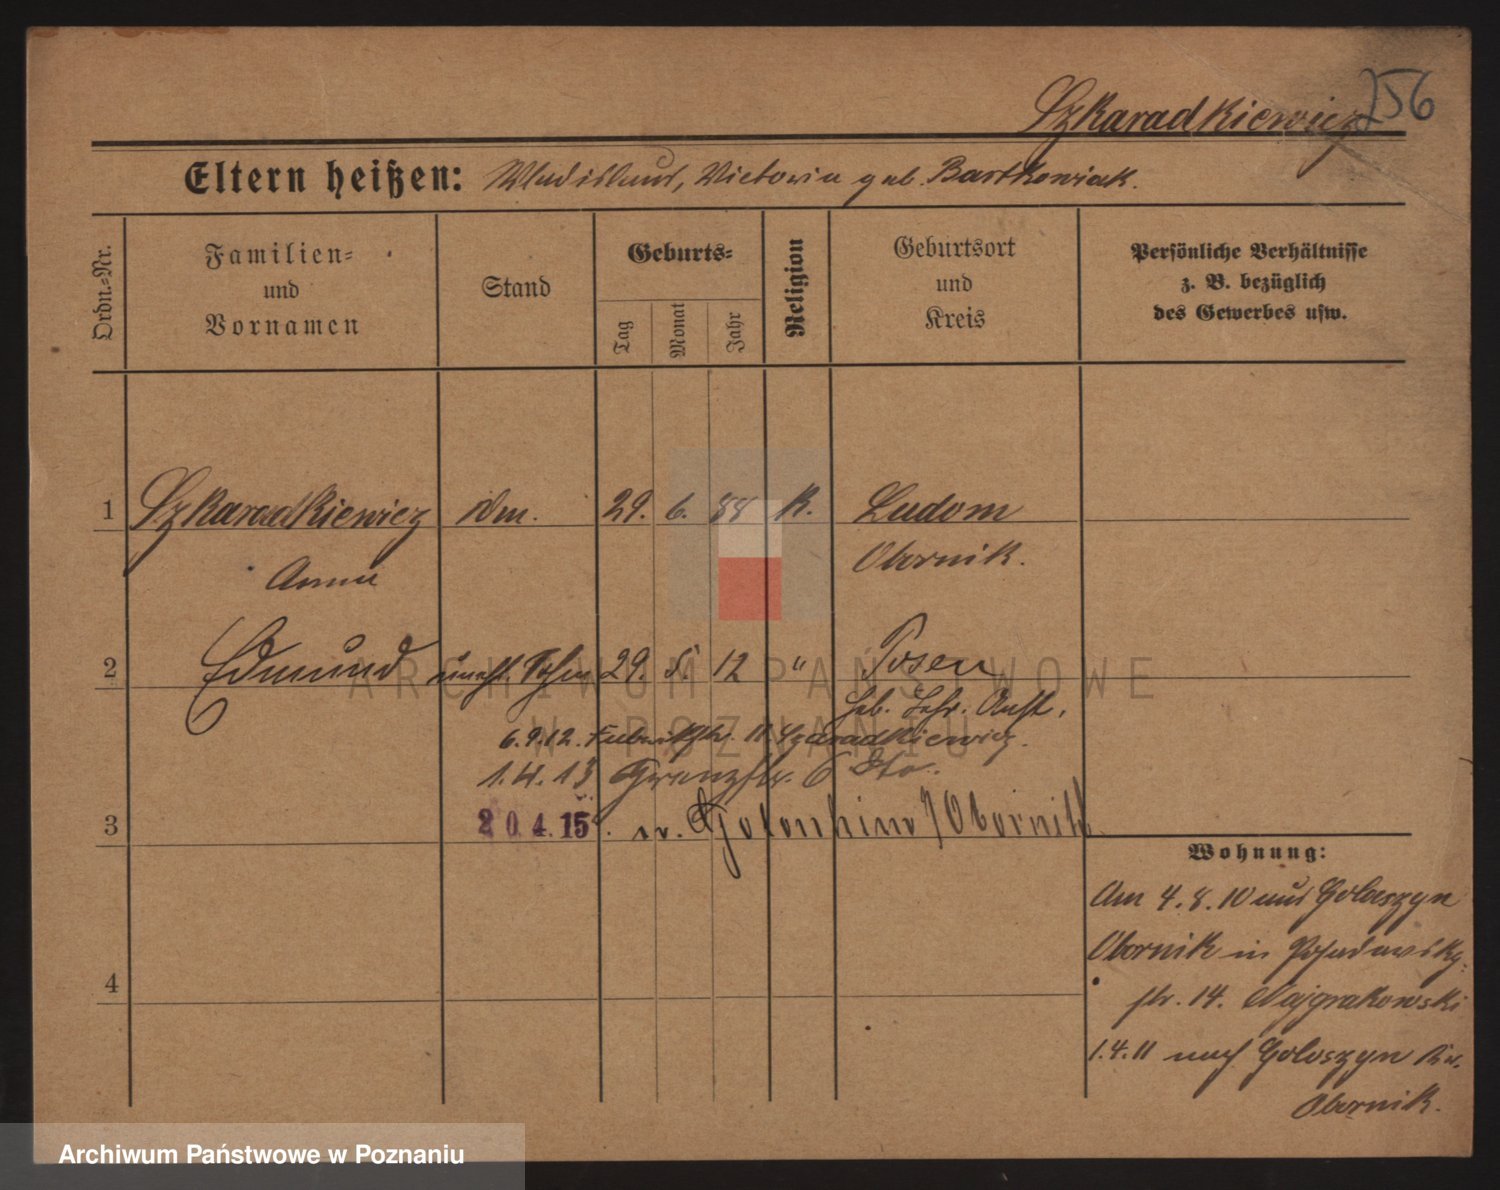 Szkaradkiewicz 256
Eltern heißen: Wladislaus, Victoria geb. Bartkowiak.
Ordn.-Nr.
Familien-
und
Vornamen
Stand
Geburts-
Tag
Monat
Jahr
Religion
Geburtsort
und
Kreis
Persönliche Verhältnisse
z. B. bezüglich
des Gewerbes usw.
1 Szkaradkiewicz Dm. 29. 6. 88 K. Ludom
Anna Obornik.
2 Edmund unehl. Sohn 29. 12 " Posen
ARCHIWUM PAŃSTWOWE
W POZNANIU
geb. Anst.
6.9.12. 11 Szkaradkiewicz.
1.4.13 Grenzstr. 6 dto.
3 20.4.15 n. Obornik
Wohnung:
Am 4.8.10 aus Golaszyn
Obornik in
str. 14. Najgrakowski
1.4.11 nach Goloszyn Kr.
Obornik.
4
Archiwum Państwowe w Poznaniu